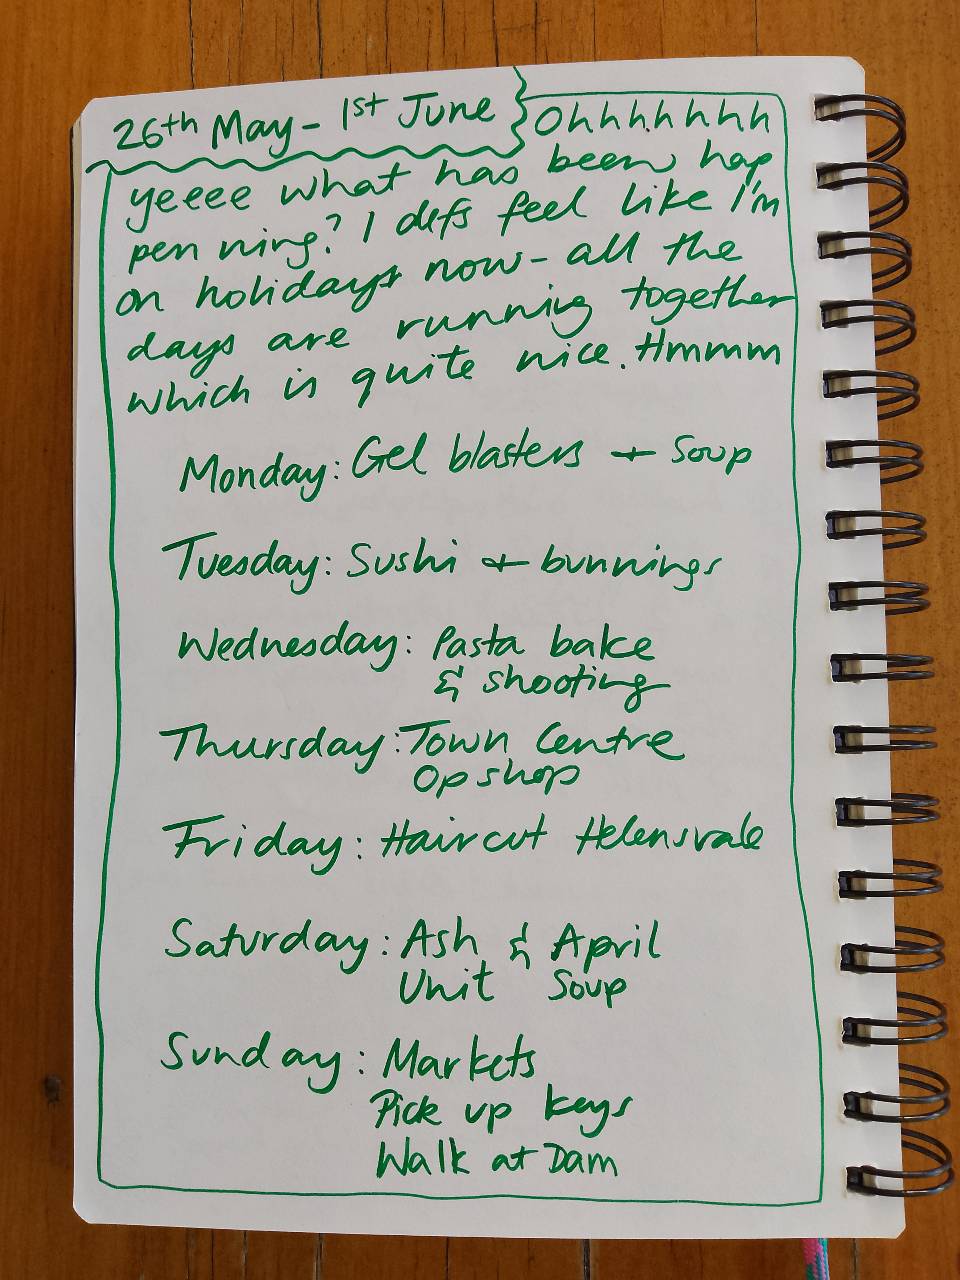 26th May - 1st June
Ohhhhhhh
yeeee what has been hap
penning? I defs feel like I'm
on holidays now - all the
days are running together
which is quite nice. Hmmm
Monday: Gel blasters + Soup
Tuesday: Sushi + bunnings
Wednesday: Pasta bake
& shooting
Thursday: Town Centre
Op shop
Friday: Haircut Helensvale
Saturday: Ash & April
Unit Soup
Sunday: Markets
Pick up keys
Walk at Dam